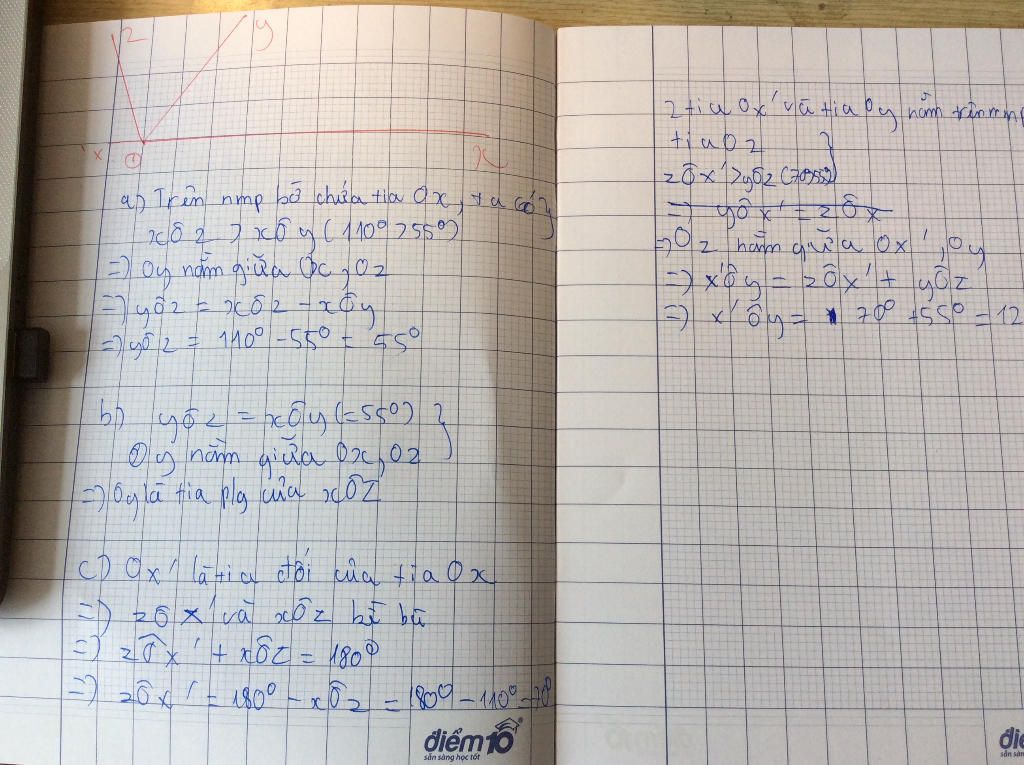 z
y
'x
O
x
a) Trên nmp bờ chứa tia Ox, ta có
xÔz > xÔy (110° > 55°)
=) Oy nằm giữa Ox, Oz
=) yÔz = xÔz - xÔy
=) yÔz = 110° - 55° = 55°
b) yÔz = xÔy (= 55°) }
Oy nằm giữa Ox, Oz
=) Oy là tia p/g của xÔz
c) Ox' là tia đối của tia Ox
=) zÔx' và xÔz kề bù
=) zÔx' + xÔz = 180°
=) zÔx' = 180° - xÔz = 180° - 110° = 70°
điểm10
sẵn sàng học tốt
2 tia Ox' và tia Oy nằm trên nmp
tia Oz }
zÔx' > yÔz (70>55°)
=) yÔx' = zÔx
=) Oz nằm giữa Ox', Oy
=) x'Ôy = zÔx' + yÔz
=) x'Ôy = 70° + 55° = 12
điể
sẵn s